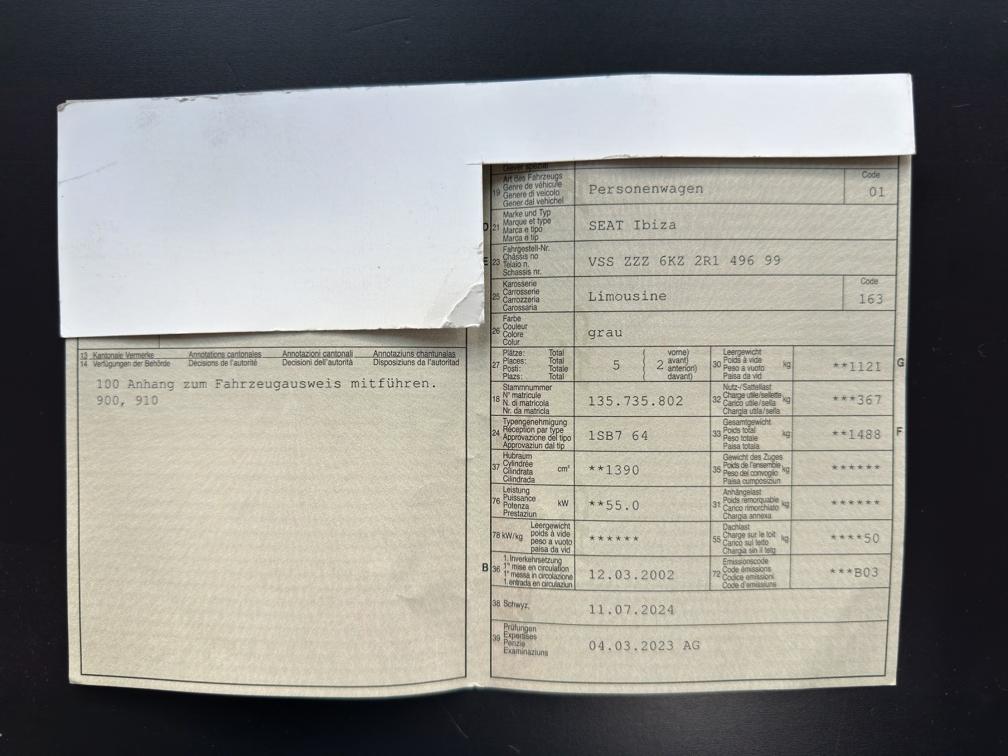 13 Kantonale Vermerke Annotations cantonales Annotazioni cantonali Annotaziuns chantunalas
14 Verfügungen der Behörde Décisions de l'autorité Decisioni dell'autorità Disposiziuns da l'autoritad
100 Anhang zum Fahrzeugausweis mitführen.
900, 910
Art des Fahrzeugs
Genre de véhicule
19 Genere di veicolo
Gener dal vehichel
Personenwagen
Code
01
Marke und Typ
D 21 Marque et type
Marca e tipo
Marca e tip
SEAT Ibiza
Fahrgestell-Nr.
E 23 Châssis no
Telaio n.
Schassis nr.
VSS ZZZ 6KZ 2R1 496 99
Karosserie
25 Carrosserie
Carrozzeria
Carossaria
Limousine
Code
163
Farbe
26 Couleur
Colore
Colur
grau
27 Plätze: Total
Places: Total
Posti: Totale
Plazs: Total
5 ( 2 vorne)
avant)
anterior)
davant)
30 Leergewicht
Poids à vide
Peso a vuoto
Paisa da vid
kg
**1121
G
18 Stammnummer
N° matricule
N. di matricola
Nr. da matricla
135.735.802
32 Nutz-/Sattellast
Charge utile/sellette
Carico utile/sella
Chargia utila/sella
kg
***367
24 Typengenehmigung
Réception par type
Approvazione del tipo
Approvaziun dal tip
1SB7 64
33 Gesamtgewicht
Poids total
Peso totale
Paisa totala
kg
**1488
F
37 Hubraum
Cylindrée
Cilindrata
Cilindrada
cm³
**1390
35 Gewicht des Zuges
Poids de l'ensemble
Peso del convoglio
Paisa cumposiziun
kg
******
76 Leistung
Puissance
Potenza
Prestaziun
kW
**55.0
31 Anhängelast
Poids remorquable
Carico rimorchiato
Chargia annexa
kg
******
78 kW/kg
Leergewicht
poids à vide
peso a vuoto
paisa da vid
******
55 Dachlast
Charge sur le toit
Carico sul tetto
Chargia sin il tetg
kg
****50
B 36 1. Inverkehrsetzung
1re mise en circulation
1a messa in circolazione
1. entrada en circulaziun
12.03.2002
72 Emissionscode
Code émissions
Codice emissioni
Code d'emissiuns
***B03
38 Schwyz,
11.07.2024
39 Prüfungen
Expertises
Perizie
Examinaziuns
04.03.2023 AG